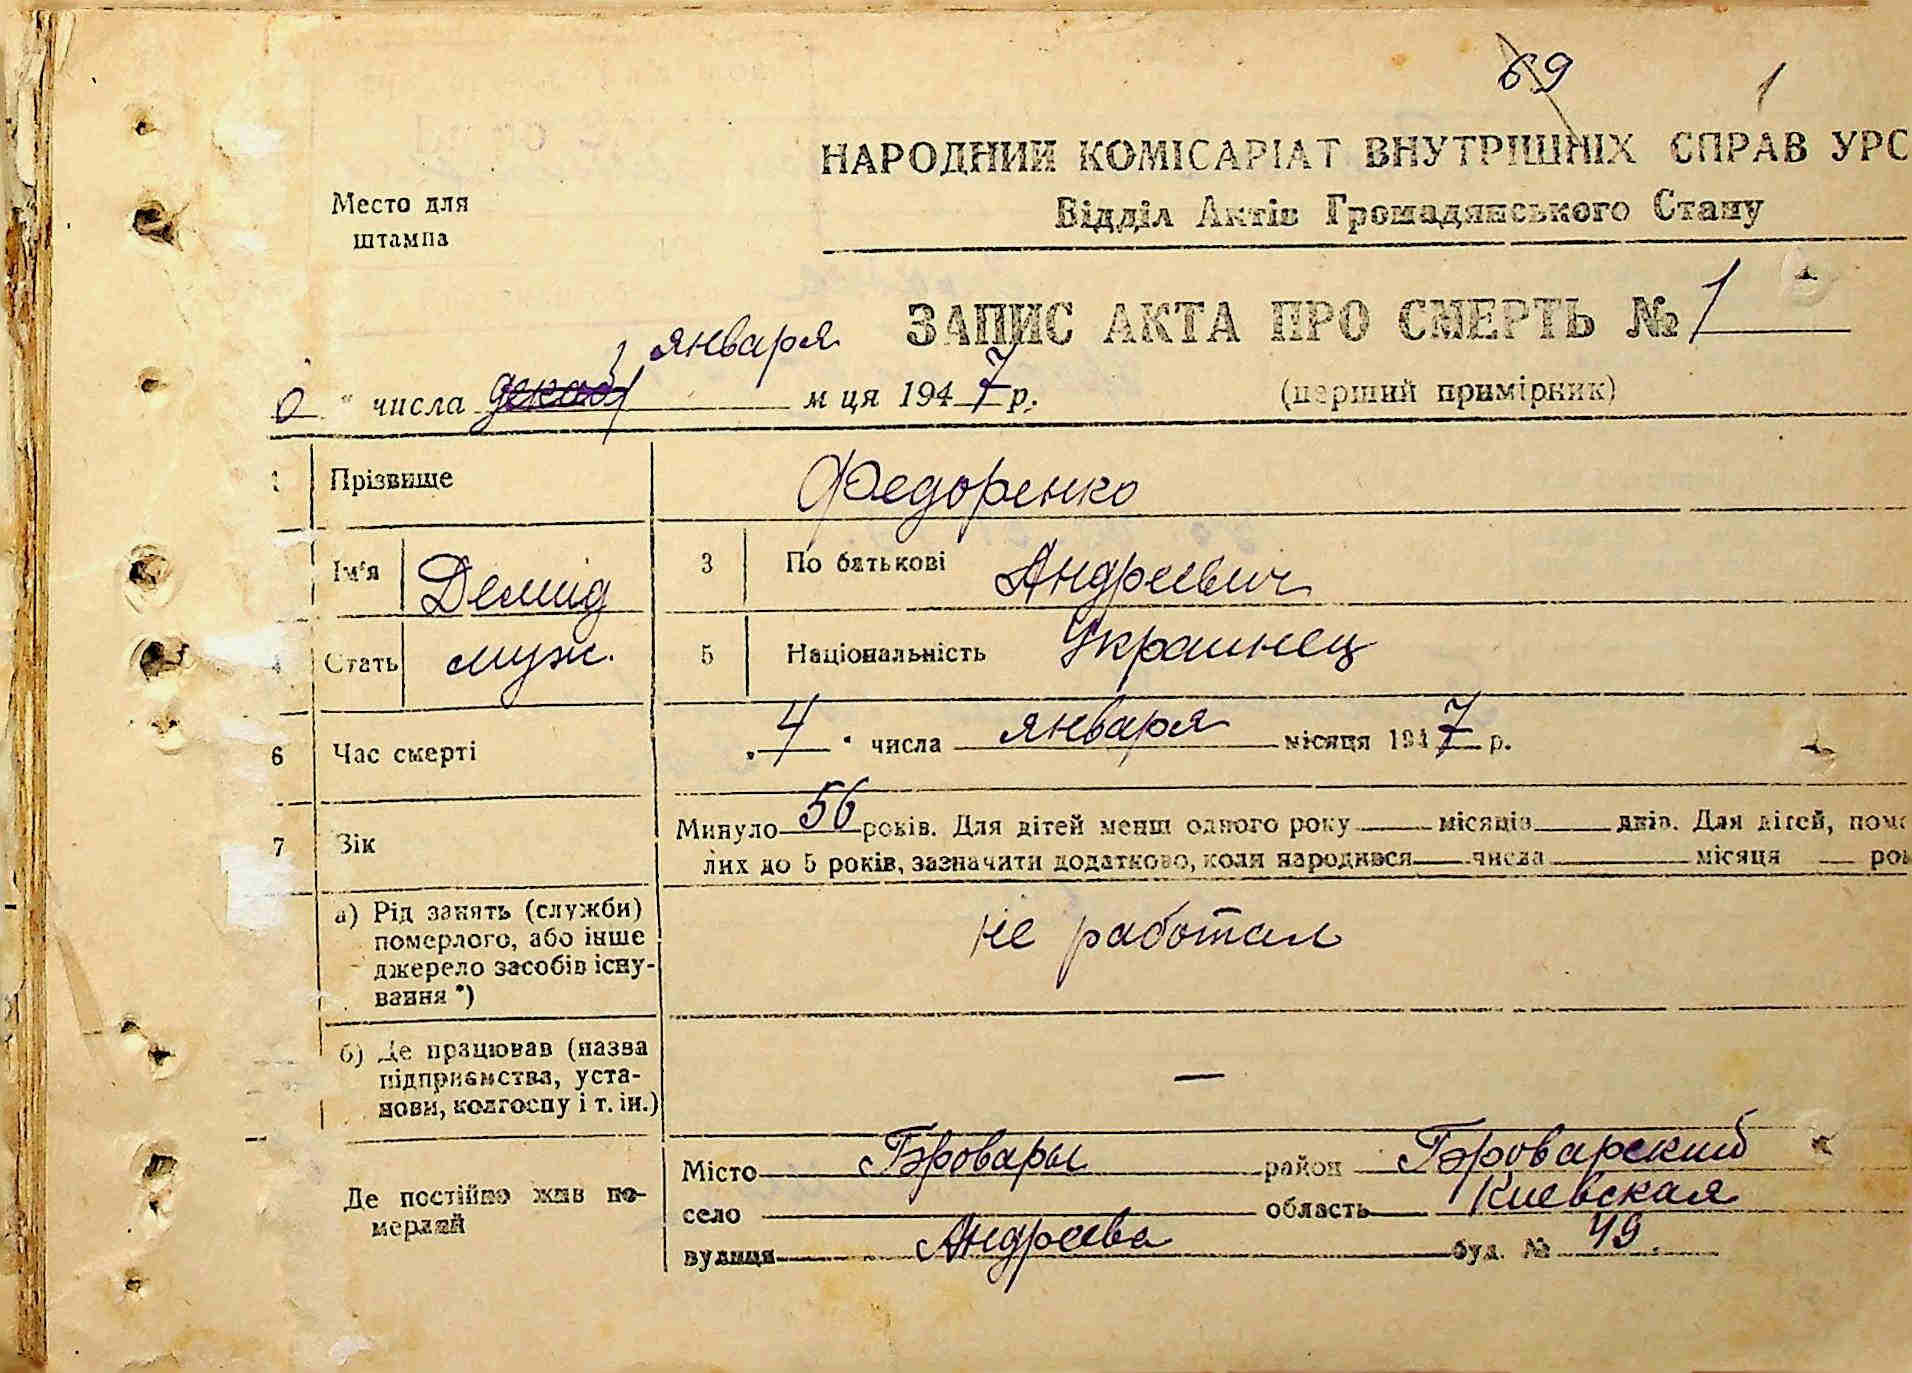 69 1
НАРОДНИЙ КОМІСАРІАТ ВНУТРІШНІХ СПРАВ УРС
Відділ Актів Громадянського Стану
Место для
штампа
ЗАПИС АКТА ПРО СМЕРТЬ № 1
января
0 " числа декаб м ця 1947 р.
(перший примірник)
1 Прізвище Федоренко
Ім'я Демид 3 По батькові Андреевич
4 Стать муж. 5 Національність Украинец
6 Час смерті „4" числа января місяця 1947 р.
7 Вік Минуло 56 років. Для дітей менш одного року місяців днів. Для дітей, поме
лих до 5 років, зазначити додатково, коли народився числа місяця рок
а) Рід занять (служби)
померлого, або інше
джерело засобів існу-
вання *)
не работал
б) Де працював (назва
підприємства, уста-
нови, колгоспу і т. ін.)
—
Де постійно жив по-
мерлий
Місто Бровары район Броварский
село область Киевская
вулиця Андреева буд. № 49.